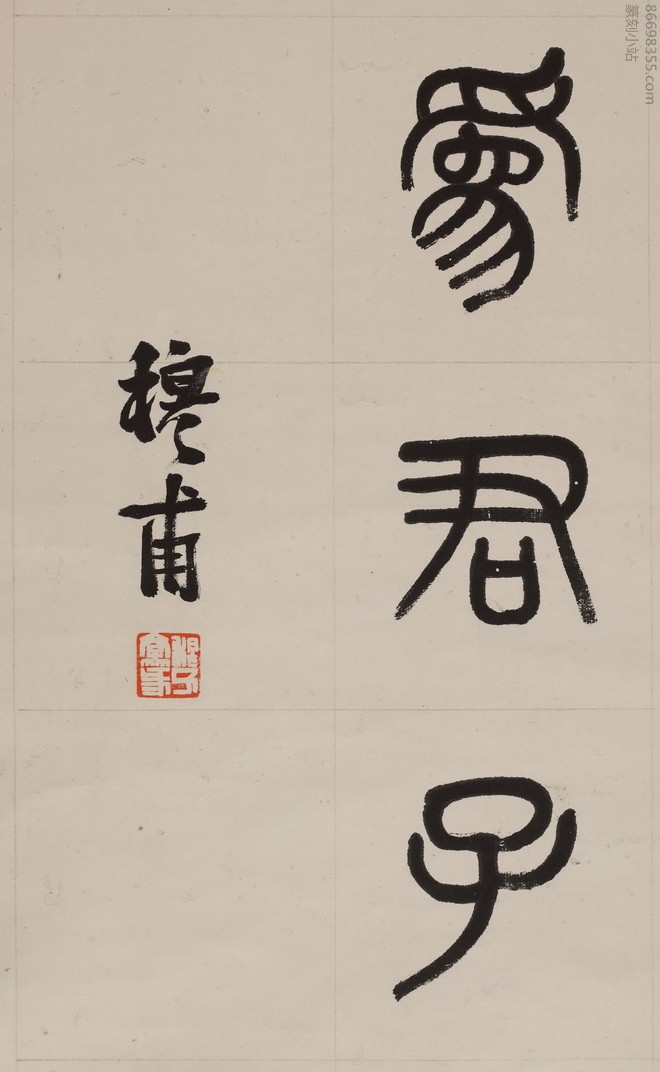 爲君子
穆甫
86698355.com
篆刻小站